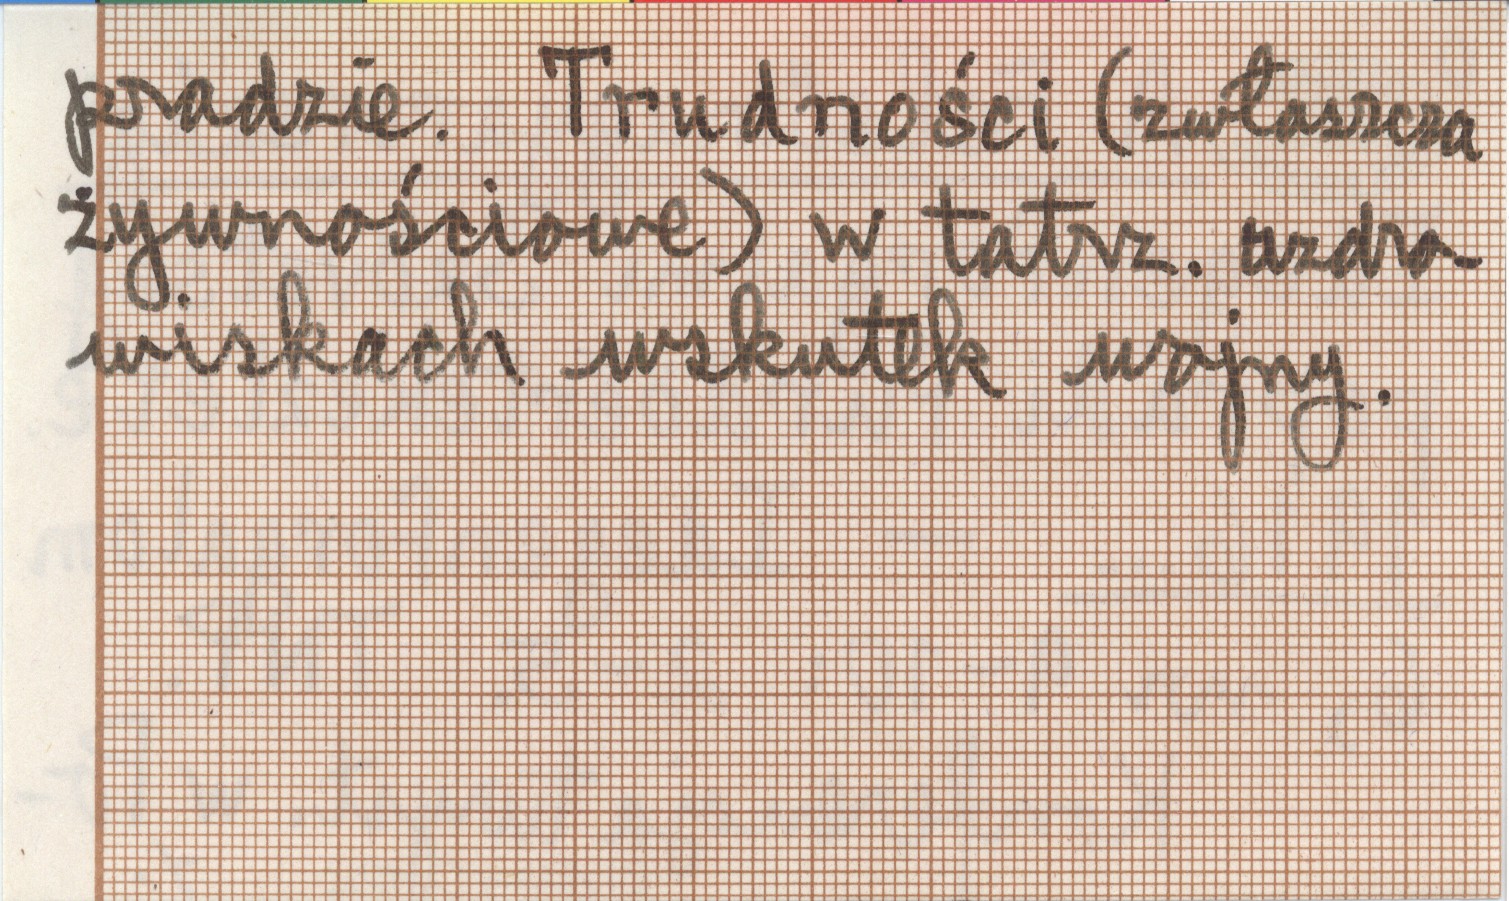 pradzie. Trudności (zwłaszcza
żywnościowe) w tatrz. uzdro
wiskach wskutek wojny.